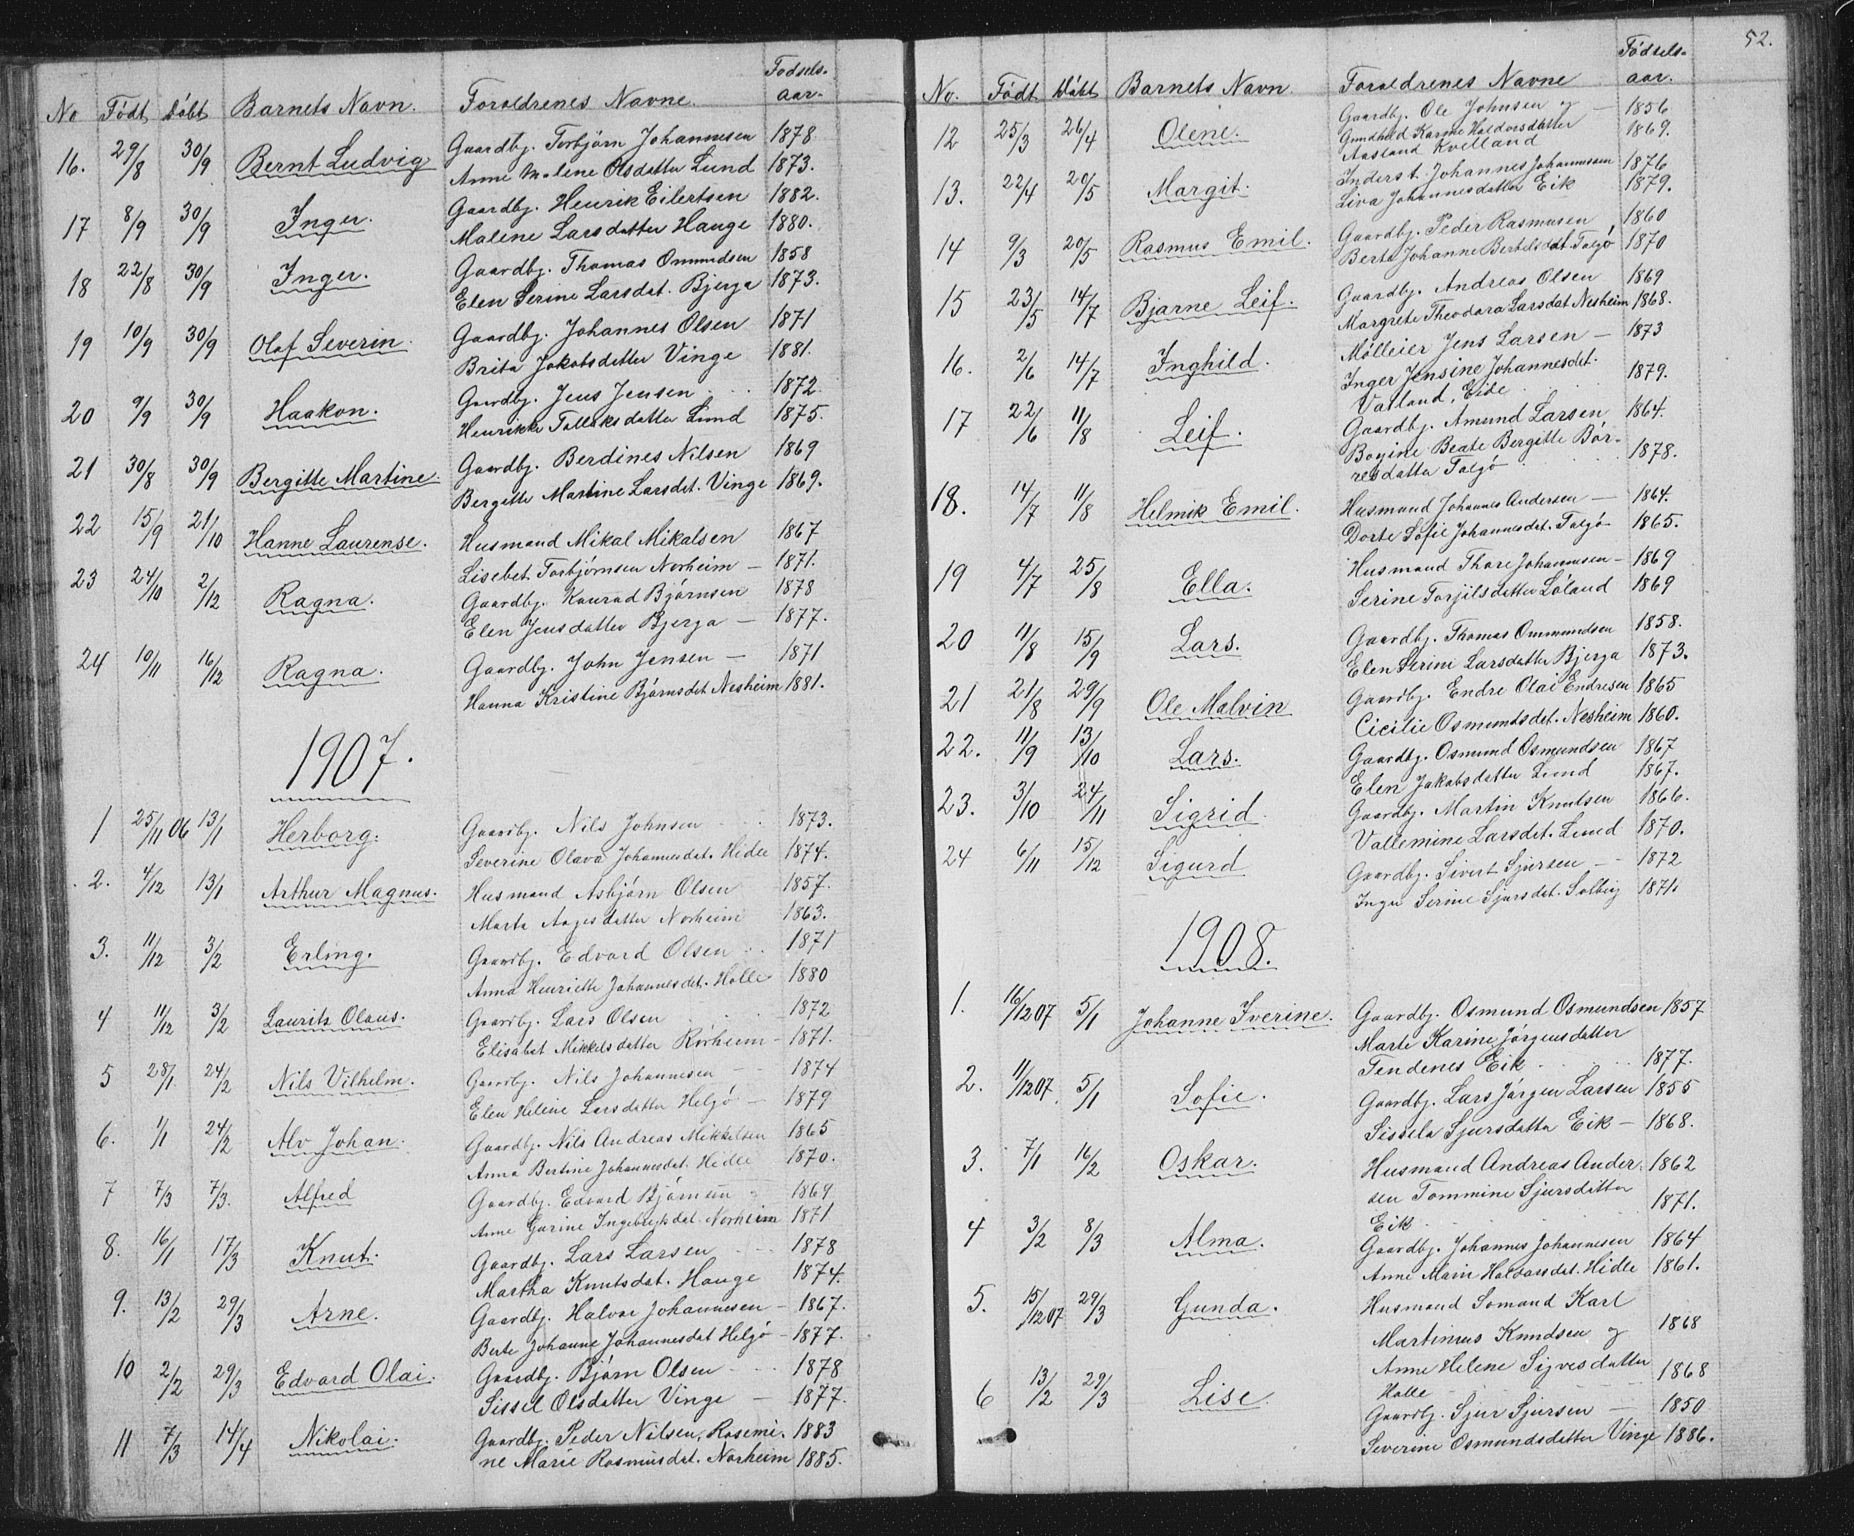 No Født Døbt Barnets Navn. Foraldrenes Navne. Fødsels-aar.
16. 29/8 30/9 Bernt Ludvig Gaardbj. Torbjørn Johannesen 1878
Anne Malene Olsdatter Lund 1873.
17 8/9 30/9 Inger. Gaardbj. Henrik Eilertsen 1882.
Malene Larsdatter Hauge 1880.
18 22/8 30/9 Inger. Gaardbj. Thomas Ommundsen 1858
Elen Serine Larsdat. Bjerga 1873.
19 10/9 30/9 Olaf Severin. Gaardbj. Johannes Olsen 1871
Brita Jakobsdatter Vinge 1881.
20 9/9 30/9 Haakon. Gaardbj. Jens Jensen 1872
Henrikke Tollaksdatter Lund 1875.
21 30/8 30/9 Bergitte Martine. Gaardbj. Berdines Nilsen 1869
Bergitte Martine Larsdet. Vinge 1869.
22 15/9 21/10 Hanne Laurense. Husmand Mikal Mikalsen 1867
Lisebet Torbjørnsen Norheim — 1871.
23 24/10 2/12 Ragna. Gaardbj. Konrad Bjørnsen 1878
Elen Jensdatter Bjerga — 1877.
24 10/11 16/12 Ragna. Gaardbj. John Jensen — 1871
Hanna Kristine Bjørnsdet. Nesheim 1881.
1907.
1 25/11 06 13/1 Herborg. Gaardbj. Nils Johnsen 1873.
Severine Olava Johannesdat. Hidle 1874.
2. 4/12 13/1 Arthur Magnus. Husmand Asbjørn Olsen 1857.
Marta Aagesdatter Norheim 1863.
3. 11/12 3/2 Erling. Gaardbj. Edvard Olsen 1871
Anna Henriette Johannesdet. Halle 1880
4 11/12 3/2 Laurits Olaus. Gaardbj. Lars Olsen 1872
Elisabet Mikkelsdatter Rørheim - 1871.
5 28/1 24/2 Nils Vilhelm. Gaardbj. Nils Johannesen — 1874
Elen Helene Larsdatter Helgø — 1879
6. 1/1 24/2 Alv Johan. Gaardbj. Nils Andreas Mikkelsen 1865
Anna Bertine Johannesdat. Hidle 1870.
7 7/3 7/3. Alfred Gaardbj. Edvard Bjørnsen 1869
Anne Gurine Ingebrigtsdat. Norheim 1871
8. 16/1 17/3 Knut. Gaardbj. Lars Larsen 1878
Martha Knutsdat. Hauge 1874.
9. 13/2 29/3 Arne. Gaardbj. Halvor Johannesen - 1867.
Berte Johanne Johannesdat Helgø - 1877.
10 2/2 29/3 Edvard Olai. Gaardbj. Bjørn Olsen 1878
Sissel Olsdatter Vinge — 1877.
11 7/3 14/4 Nikolai. Gaardbj. Peder Nilsen, Rasmi- 1883
ne Marie Rasmusdat. Norheim 1885.
52.
No. Født Døbt Barnets Navn Foraldrenes Navne Fødsels-aar.
12 25/3 26/4 Olene. Gaardbj. Ole Johnsen og — 1856
Gundhild Karine Haldorsdatter 1869.
Aasland Kvelland
13. 22/4 20/5 Margit. Inderst. Johannes Johannessen 1876
Liva Johannesdatter Eik 1879.
14 9/3 20/5 Rasmus Emil. Gaardbj. Peder Rasmusen 1860
Berta Johanne Bertelsdat. Talgø 1870
15 23/5 14/7 Bjarne Leif. Gaardbj. Andreas Olsen 1869
Margrete Theodora Larsdat Nesheim 1868.
16. 2/6 14/7 Inghild. Mølleier Jens Larsen — 1873
Inger Jensine Johannesdet. 1879.
Vatland, Eide
17 22/6 11/8 Leif. Gaardbj. Amund Larsen 1864.
Bogine Beate Bergitte Bør-
resdatter Talgø 1878.
18. 14/7 11/8 Helmik Emil. Husmand Johannes Andersen — 1864.
Dorte Sofie Johannesdat. Talgø 1865.
19 4/7 25/8 Ella. Husmand Thore Johannesen - 1869
Serine Torjilsdatter Løland 1869
20 11/8 15/9 Lars. Gaardbj. Thomas Ommundsen 1858.
Elen Serine Larsdatter Bjerga 1873.
21 21/8 29/9 Ole Malvin Gaardbj. Endre Olai Endresen 1865
Cicilie Osmundsdet. Nesheim 1860.
22. 11/9 13/10 Lars. Gaardbj. Osmund Osmundsen 1867
Elen Jakobsdatter Lund 1867.
23. 3/10 24/11 Sigrid Gaardbj. Martin Knutsen 1866.
Vallemine Larsdet. Lund 1870.
24 6/11 15/12 Sigurd Gaardbj. Sivert Sjursen — 1872
Inger Serine Sjursdet. Solbjø 1871.
1908.
1. 16/12 07 5/1 Johanne Iverine. Gaardbj. Osmund Osmundsen 1857
Marte Karine Jørgensdatter
Tendenes Eik 1877.
2. 11/12 07 5/1 Sofie. Gaardbj. Lars Jørgen Larsen 1855
Sissela Sjursdatter Eik — 1868.
3. 7/1 16/2 Oskar. Husmand Andreas Ander- 1862
sen Tommine Sjursdatter 1871.
Eik
4 3/2 8/3 Alma. Gaardbj. Johannes Johannesen 1864
Anne Marie Halvorsdet. Hidle 1861.
5. 15/12 07 29/3 Gunda. Husmand Sømand Karl
Martinius Knudsen og 1868
Anne Helene Sigvesdatter 1868
Halle
6 13/2 29/3 Lise. Gaardbj. Sjur Sjursen — 1850
Severine Osmundsdatter Vinge 1886.